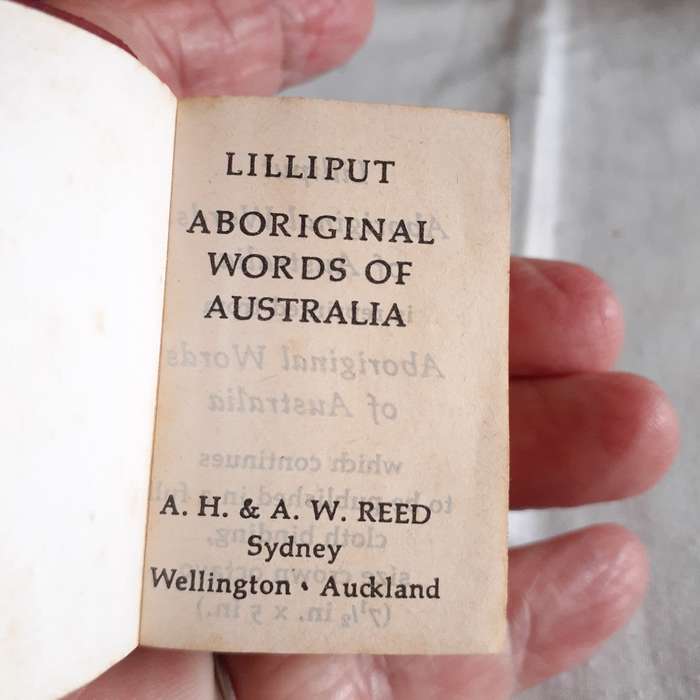 LILLIPUT
ABORIGINAL
WORDS OF
AUSTRALIA
A. H. & A. W. REED
Sydney
Wellington • Auckland